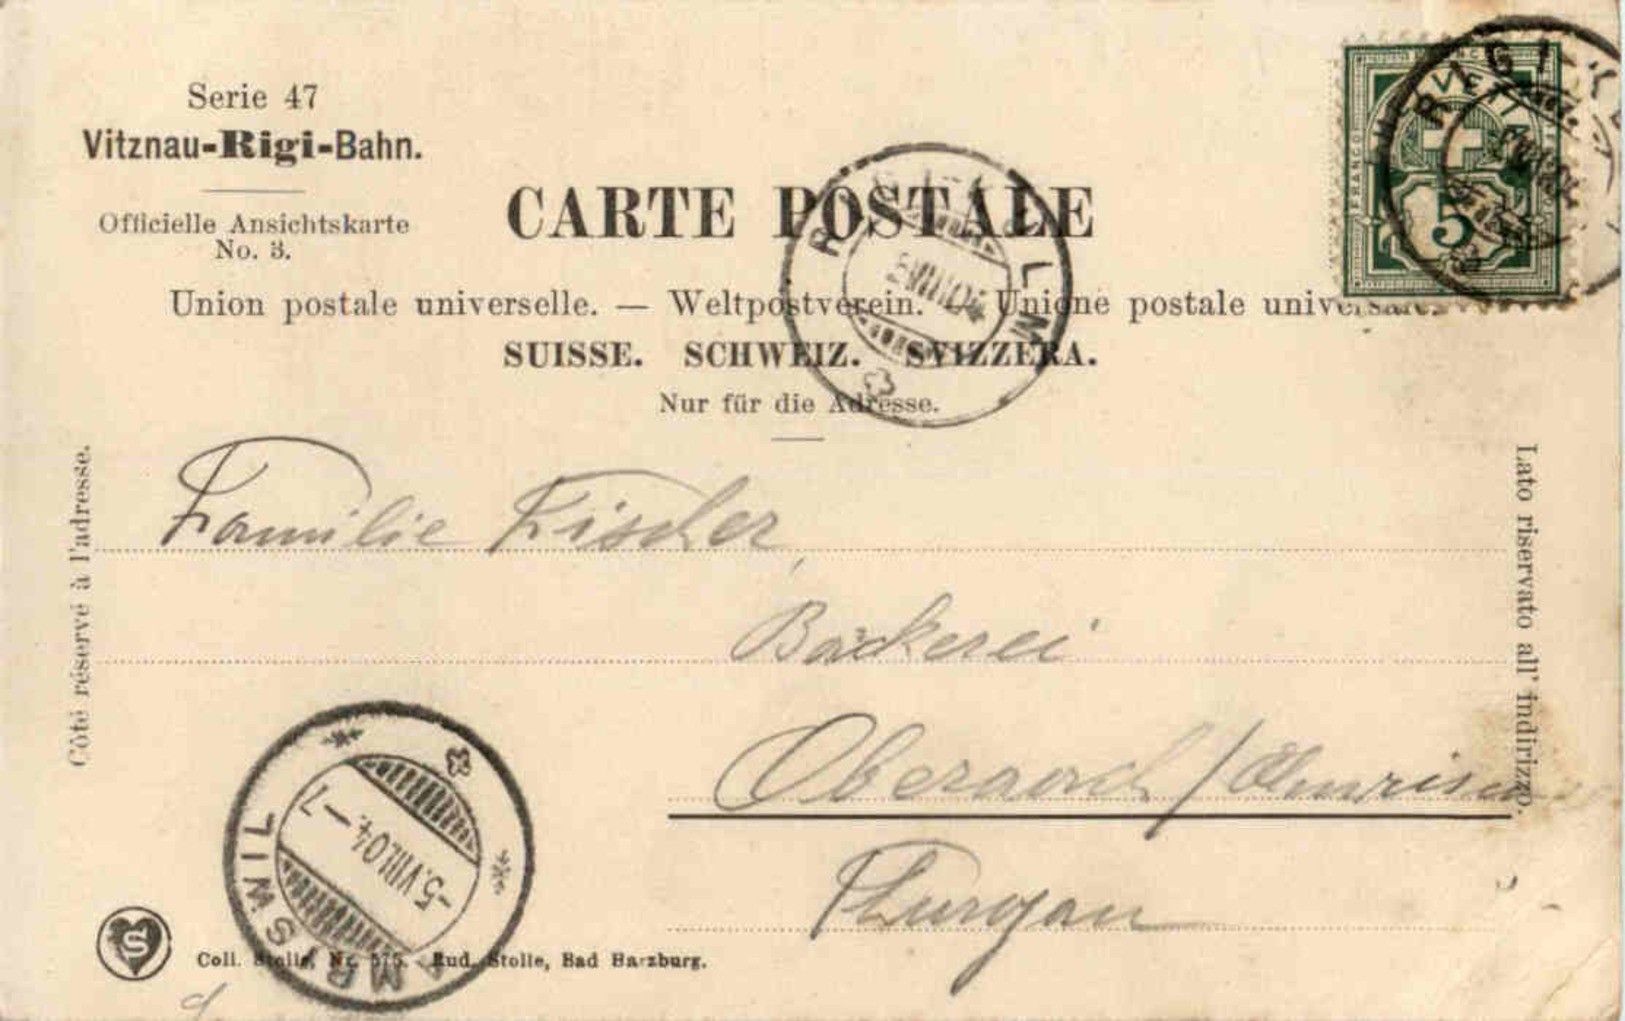 Serie 47
Vitznau-Rigi-Bahn.
Officielle Ansichtskarte
No. 3.
CARTE POSTALE
Union postale universelle. — Weltpostverein. — Unione postale universale.
SUISSE. SCHWEIZ. SVIZZERA.
Nur für die Adresse.
FRANCO
HELVETIA
5
RIGI
RIGI KULM
5.VIII.04
Côté réservé à l'adresse.
Lato riservato all' indirizzo.
Familie Fischer,
Bäckerei
Oberaach/Amriswil
Thurgau
AMRISWIL
-5.VIII.04.-7
S
Coll. Stolle, Nr. 575. Rud. Stolle, Bad Harzburg.